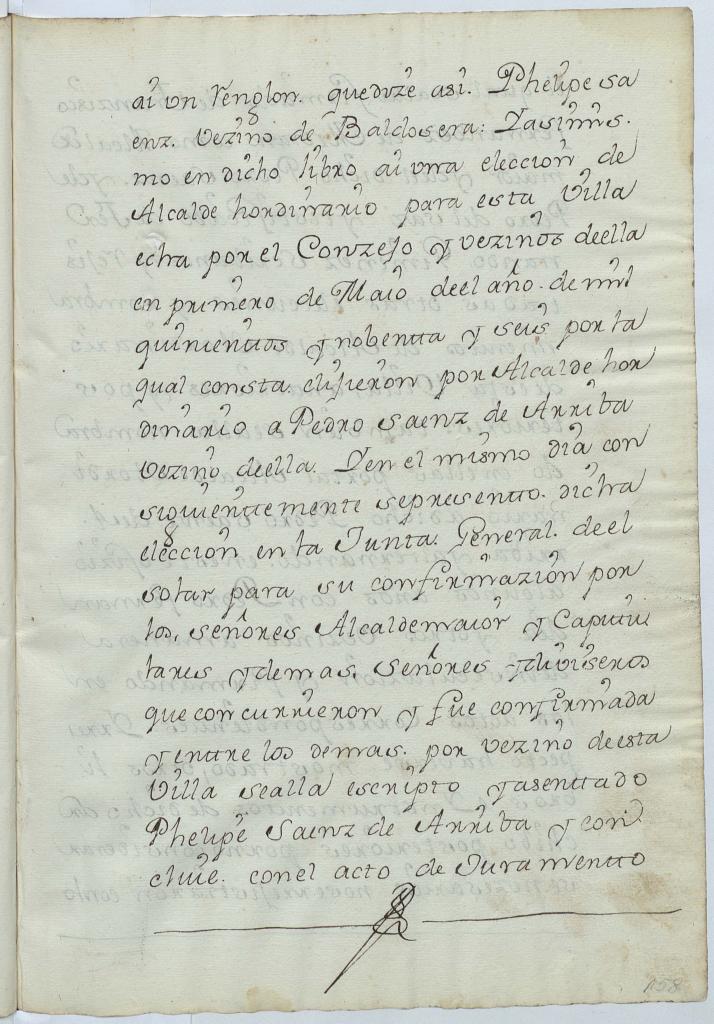 ai vn Renglon. que duze asi. Phelipe sa
enz. vezino de Baldosera: Yasimis.
mo en dicho libro ai vna eleccion de
Alcalde hordinario para esta Villa
echa por el Conzejo y vezinos deella
en primero de Maio deel año. de mil
quinientos y nobentta y seis por la
qual consta. elijieron por Alcalde hor
dinario a Pedro saenz de Arriba
vezino deella. Yen el mismo dia con
siguienttemente sepresentto. dicha
eleccion en la Junta. General. de el
solar para su confirmazion por
los, señores Alcaldemaior y Capitu
lares ydemas. señores ydiviseros
que concurrieron y fue confirmada
yenttre los demas. por vezino deesta
Villa sealla escripto yasenttado
Phelipe Saenz de Arriba y con
cluie. con el acto de Juramentto
158